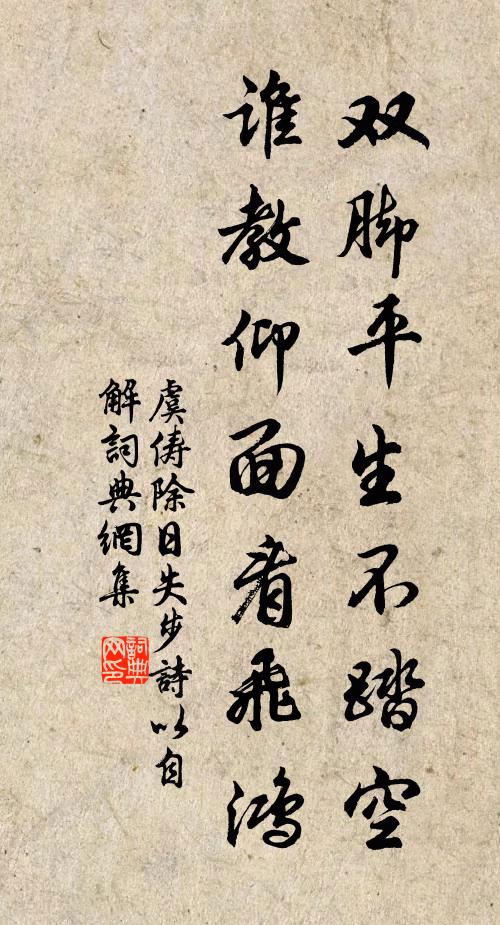 双脚平生不踏空
谁教仰面看飛鴻
虞俦除日失步詩以自
解詞典網集
詞典网印